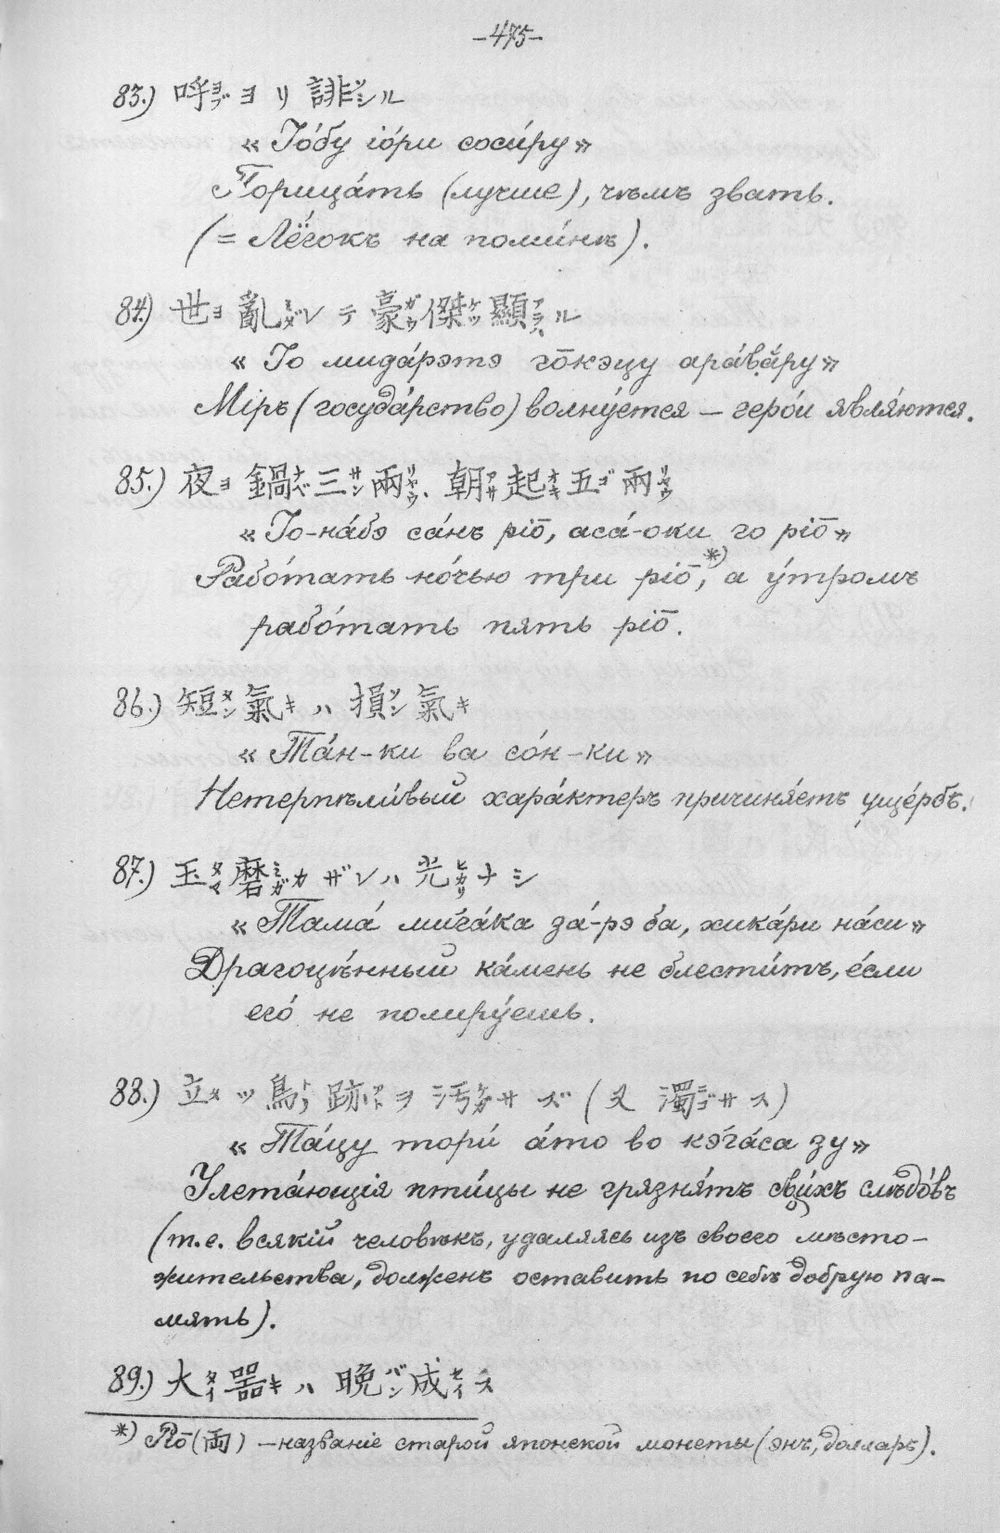 -475-
83.) 呼ヨブヨリ誹ソシル
« Іо́бу іо́ри соси́ру»
Порица́ть (лучше), чѣмъ звать.
(= Лёгокъ на поми́нѣ).
84.) 世ヨ亂ミダレテ豪ガウ傑ケツ顯アラハル
« Іо мида́рэтэ го̄кэцу ара́ва̄ру»
Міръ (госуда́рство) волну́ется — геро́и явля́ются.
85.) 夜ヨ鍋ナベ三サン兩リヤウ、朝アサ起オキ五ゴ兩リヤウ
« Іо-на́бэ са́нъ ріо̄, аса́-оки го ріо̄»
Рабо́тать но́чью три ріо̄*), а у́тромъ
рабо́тать пять ріо̄.
86.) 短タン氣キハ損ソン氣キ
« Та́н-ки ва со́н-ки»
Нетерпѣли́вый хара́ктеръ причиня́етъ уще́рбъ.
87.) 玉タマ磨ミガカザレハ光ヒカリナシ
« Тама́ мига́ка за́-рэ ба, хика́ри на́си»
Драгоцѣ́нный ка́мень не блести́тъ, е́сли
его́ не полиру́ешь.
88.) 立タツ鳥トリ跡アトヲ汚ケガサズ (又 濁ニゴサス)
« Та́цу тори́ а́то во кэга́са зу»
Улета́ющія пти́цы не грязня́тъ свои́хъ слѣдо́въ
(т.е. всякій человѣкъ, удаляясь изъ своего мѣсто-
жительства, долженъ оставить по себѣ добрую па-
мять).
89.) 大タイ器キハ晩バン成セイス
*) Ріо̄ (両) — названіе старой японской монеты (энъ, долларъ).